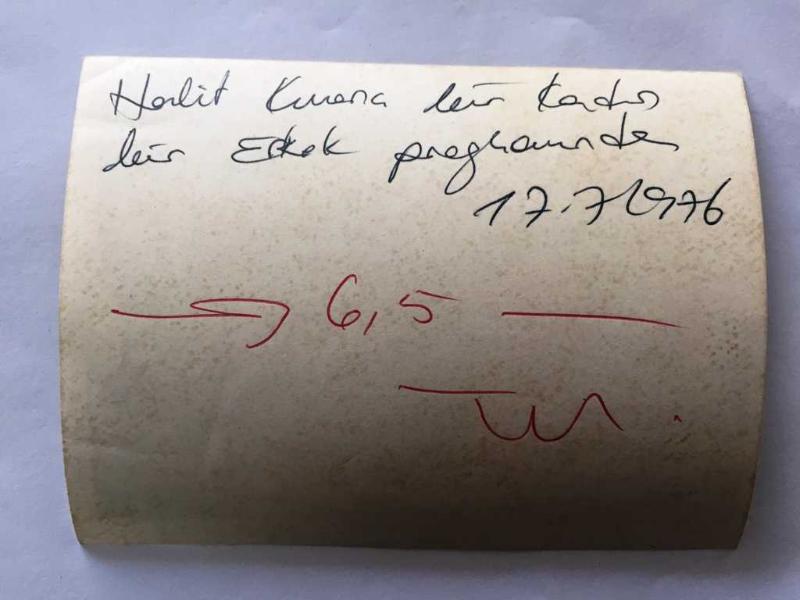 Halit Kıvanç bir Kadın
bir Erkek proghamında
17.7.1976
6,5